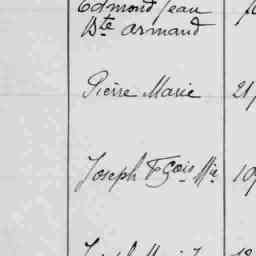 Edmond Jean
Bte Armand
Pierre Marie 21
Joseph Fçois Mie 19